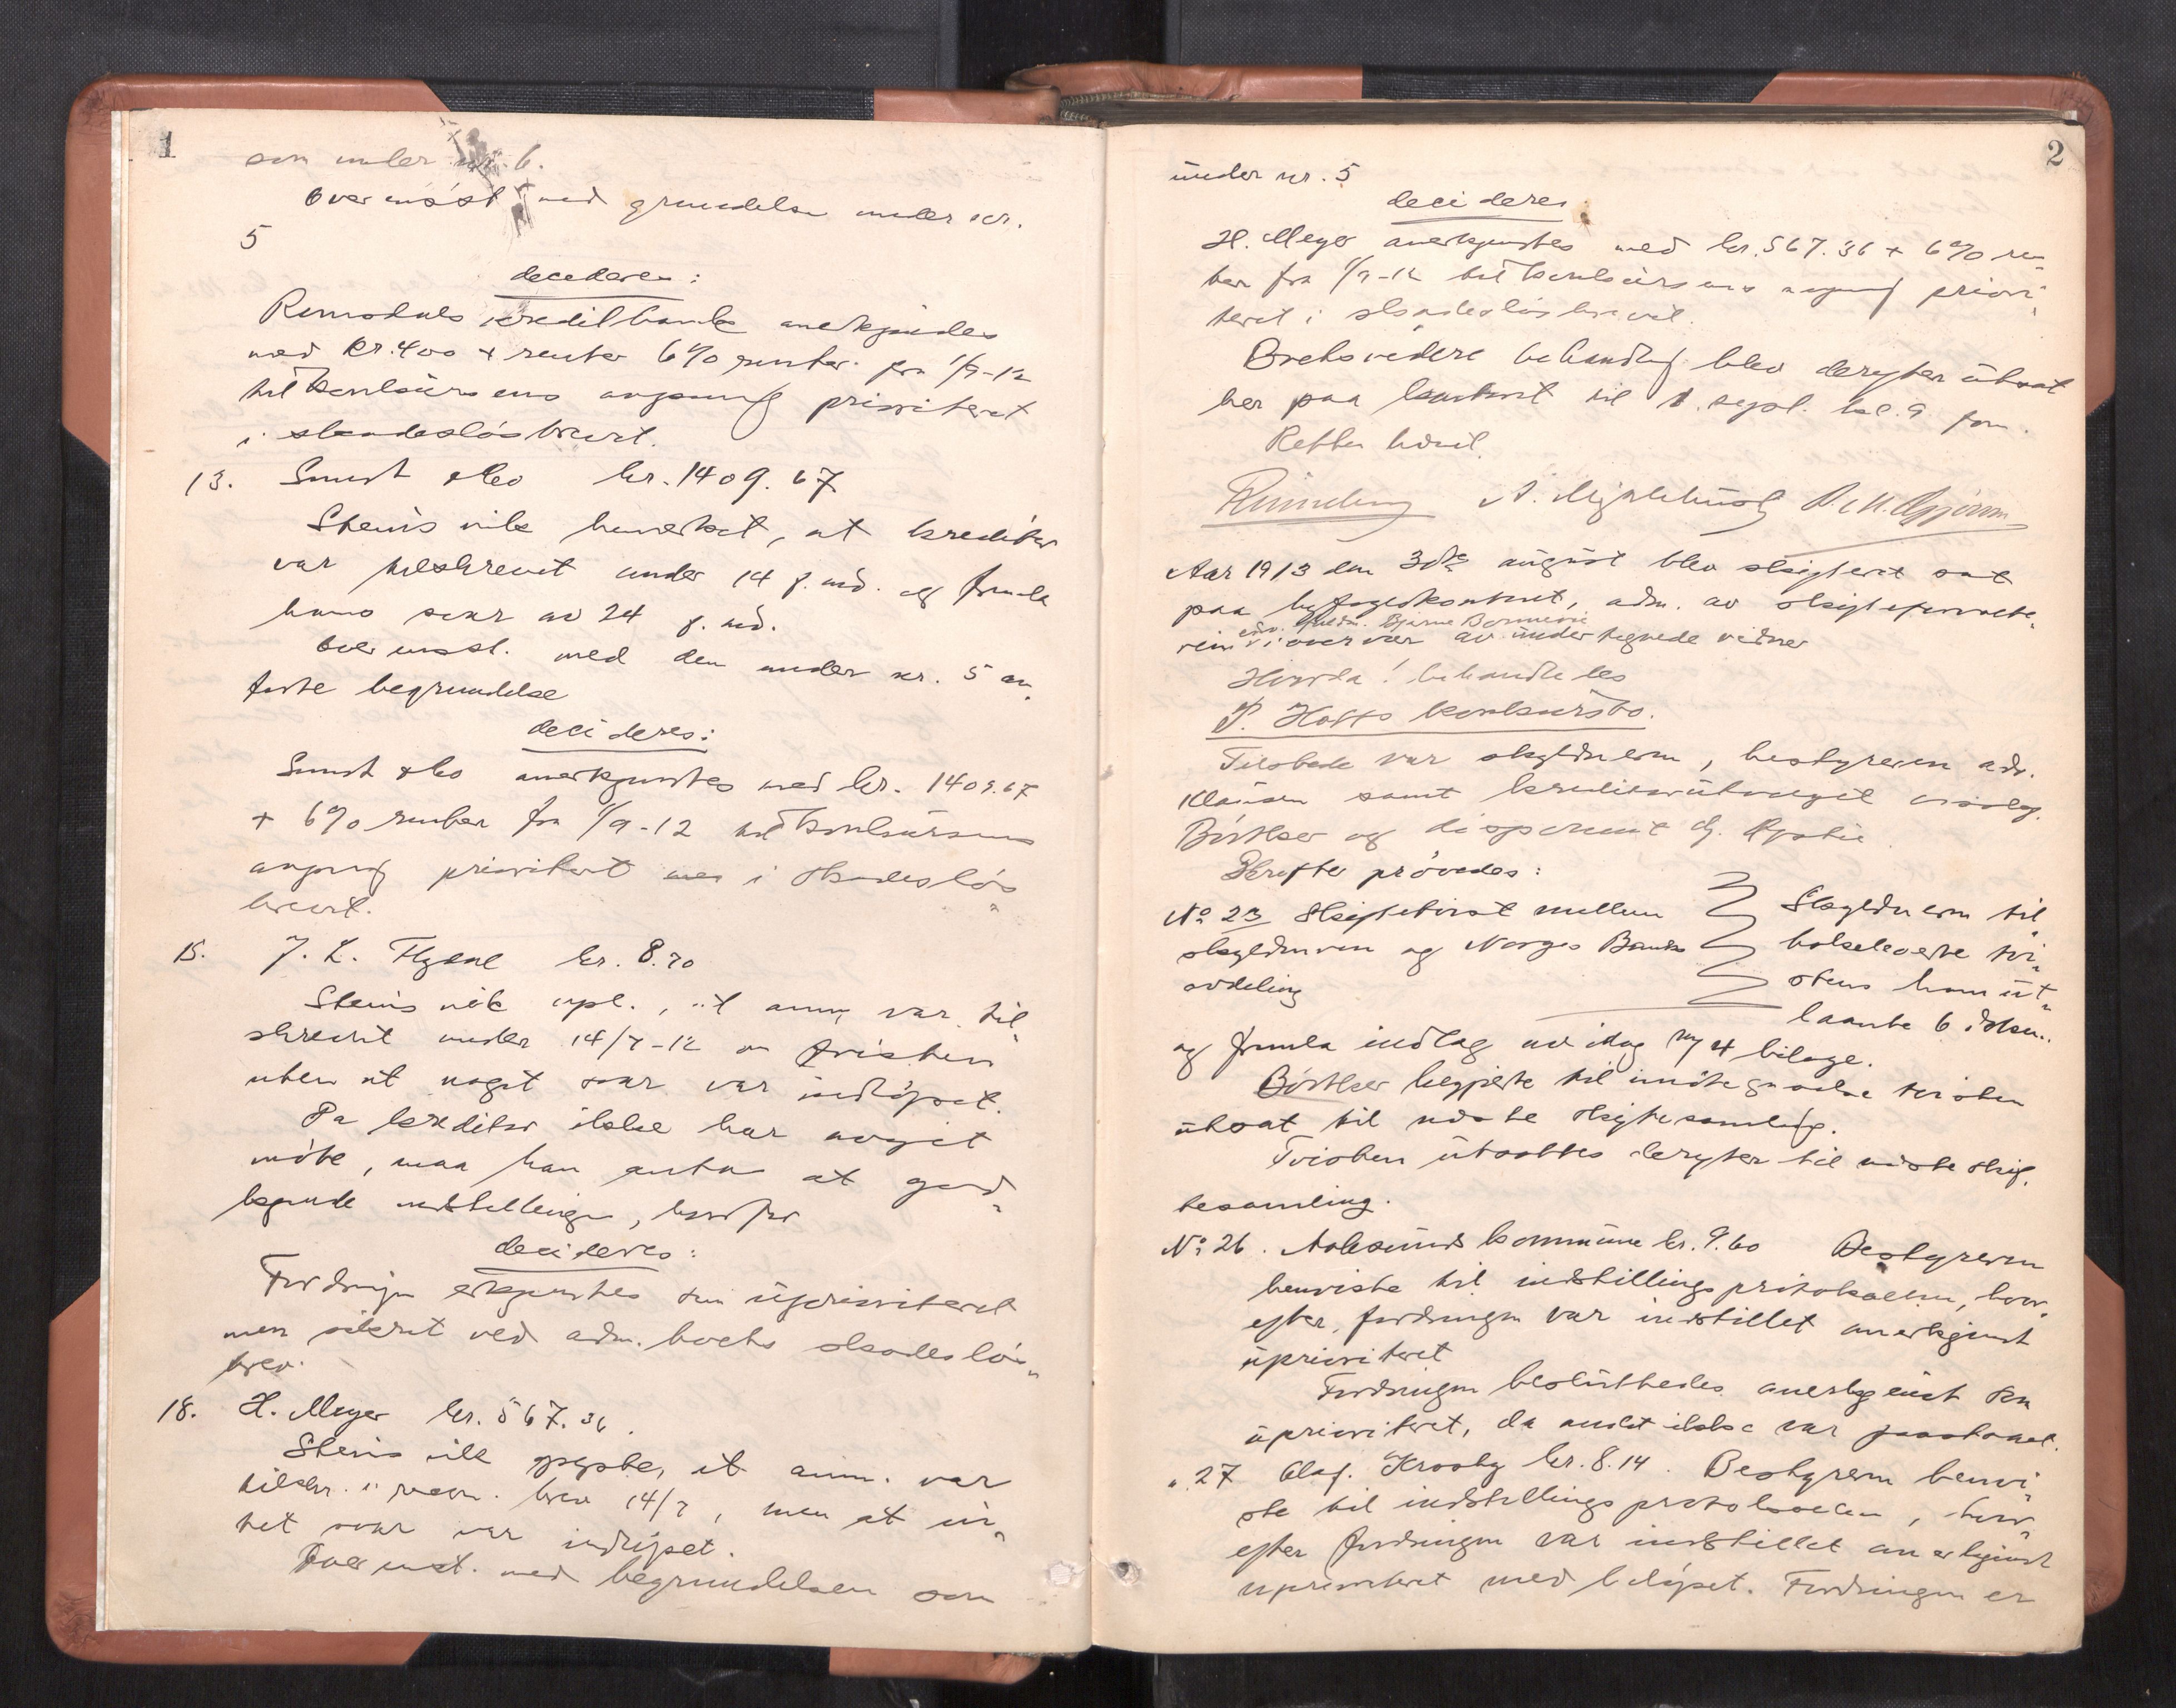 1
som under nr. 6.
Overensst. med grundelse under nr.
5
decideres:
Romsdals kreditbank anerkjendes
med kr. 400 + renter 6% renter fra 1/9-12
til konkursens aapning prioritert
i skadesløsbrevet.
13. Smust & Co kr. 1409.67
bemerket, at kreditor
var tilskrevet under 14 f. md. og fremla
hans svar av 24 f. md.
Overensst. med den under nr. 5 an-
førte begrundelse
decideres:
Smust & Co anerkjendtes med kr. 1409.67
+ 6% renter fra 1/9-12 til konkursens
aapning prioritert i skadesløs-
brevet.
15. J. L. kr. 8.70
opl., at anm. var til-
skrevet under 14/7-12 om fristen
uten at noget svar var indløpet.
Da kreditor ikke har avgit
møte, maa han antas at god-
kjende indstillingen, hvorfor
decideres:
Fordringen erkjendtes som uprioriteret
men sikret ved adm. boets skadesløs-
brev.
18. H. Meyer kr. 567.36.
at anm. var
tilskr. brev 14/7, men at in-
tet svar var indløpet.
Overenst. med begrundelsen som
2
under nr. 5
decideres:
H. Meyer anerkjendtes med kr. 567.36 + 6% ren-
ter fra 1/9-12 til konkursens aapning priori-
teret i skadesløsbrevet.
Boets videre behandling blev derefter utsat
her paa kontoret til 1. sept. kl. 9 fm.
Retten hævet.
Aar 1913 den 30te august blev skifteret sat
paa byfogedkontoret, adm. av skifteforvalte-
ren i overvær av undertegnede vidner
edv. fuldm. Bjarne
Hvorda! behandledes
P. Hoffs konkursbo.
Tilstede var skyldneren, bestyreren adv.
Klausen samt kreditorutvalget
og disponent
Skrifter prøvedes:
No 23 Skiftetvist mellem
skyldneren og Norges Banks
avdeling
Skyldneren til-
bakeleverte tvi-
stens ham ut-
laante 6 dok.
og fremla indlæg av idag m/ 4 bilage.
begjærte til imøtegaaelse tvisten
utsat til næste skiftesamling.
Tvisten utsattes derefter til næste skif-
tesamling.
No 26. Aalesunds kommune kr. 9.60 Bestyreren
henviste til indstillingsprotokollen, hvor-
efter fordringen var indstillet anerkjendt
uprioritert
Fordringen besluttedes anerkjendt som
uprioritert, da andet ikke var paastaaet.
" 27 Olaf Krosby kr. 8.14. Bestyreren henvi-
ste til indstillingsprotokollen, hvor-
efter fordringen var indstillet anerkjendt
uprioritert med beløpet. Fordringen er